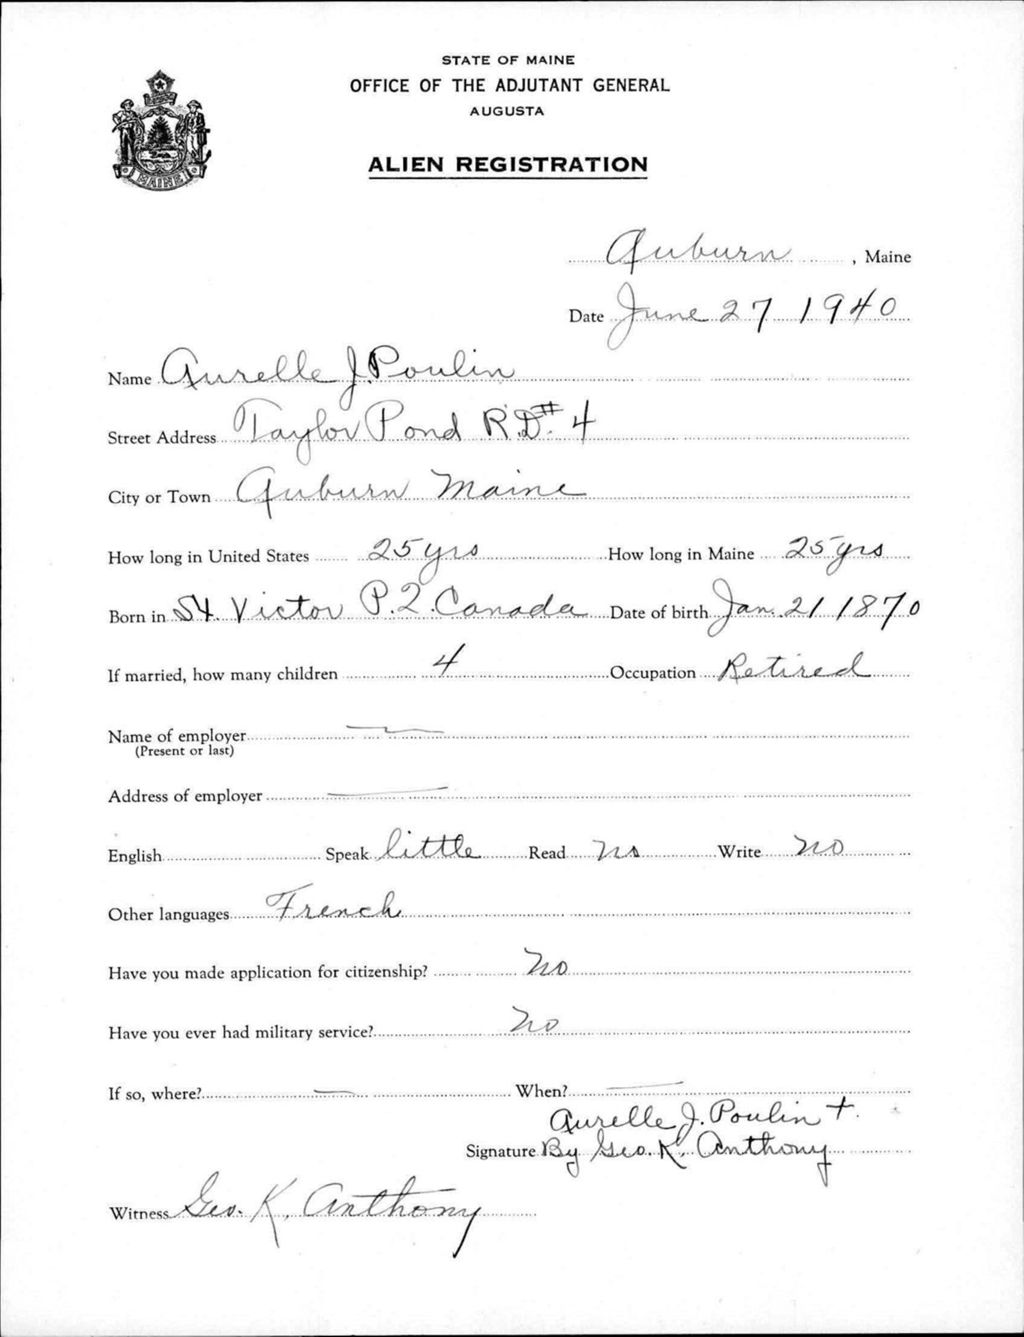 STATE OF MAINE
OFFICE OF THE ADJUTANT GENERAL
AUGUSTA
ALIEN REGISTRATION
MAINE
Auburn, Maine
Date June 27 1940
Name Aurelle J. Poulin
Street Address Taylor Pond R.D. # 4
City or Town Auburn Maine
How long in United States 25 yrs How long in Maine 25 yrs
Born in St. Victor P.Q. Canada Date of birth Jan. 21 1870
If married, how many children 4 Occupation Retired
Name of employer —
(Present or last)
Address of employer —
English Speak little Read no Write no
Other languages French
Have you made application for citizenship? No
Have you ever had military service? No
If so, where? — When? —
Aurelle J. Poulin +
Signature By Geo. K. Anthony
Witness Geo. K. Anthony